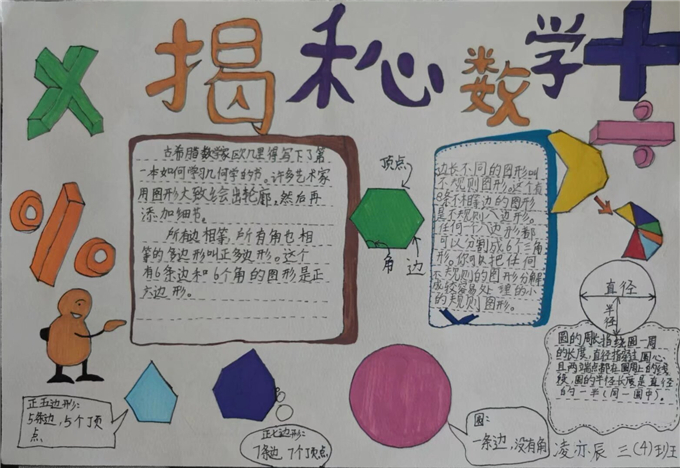 揭秘数学
古希腊数学家欧几里得写下了第
一本如何学习几何学的书。许多艺术家
用图形大致绘出轮廓。然后再
添加细节。
所有边相等,所有角也相
等的多边形叫正多边形。这个
有6条边和6个角的图形是正
六边形。
顶点
角
边
边长不同的图形叫
不规则图形。这个有
8条不相等边的图形
是不规则八边形。
任何一个八边形都
可以分割成6个三角
形。你可以把任何
不规则的图形分解
成较容易处理的小
的规则图形。
直径
半径
圆的周长指绕圆一周
的长度,直径指穿过圆心
且两端点都在圆周上的线
段,圆的半径长度是直径
的一半(同一圆中)。
正五边形:
5条边,5个顶
点
正七边形:
7条边 7个顶点
圆:
一条边,没有角
凌亦辰 三(4)班